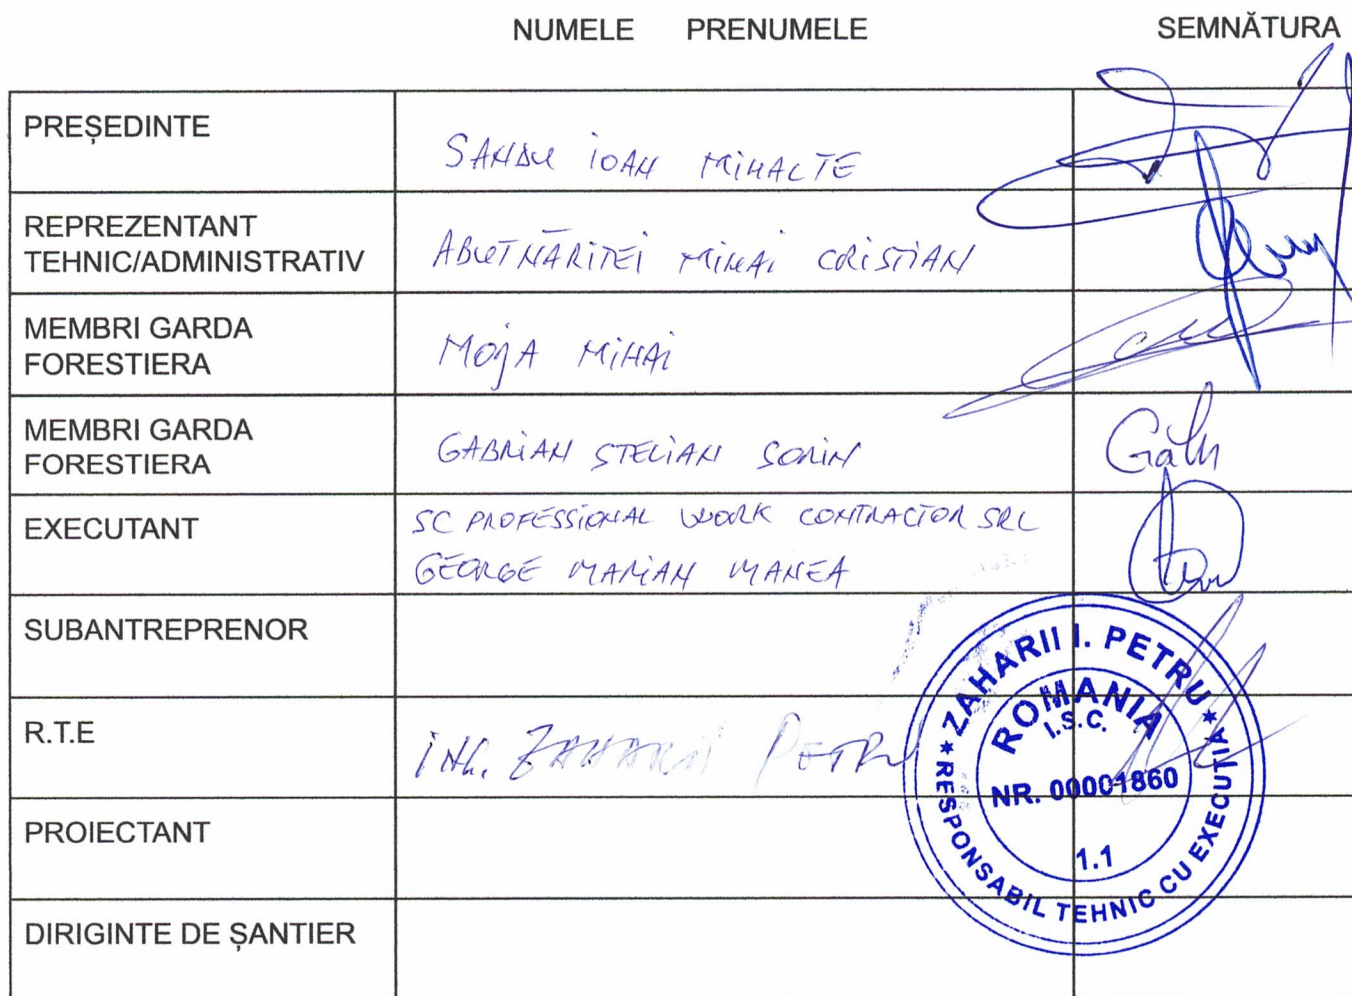 NUMELE PRENUMELE SEMNĂTURA
PREȘEDINTE
SANDU IOAN MIHALTE
REPREZENTANT
TEHNIC/ADMINISTRATIV
ABUTNĂRITEI MIHAI CRISTIAN
MEMBRI GARDA
FORESTIERA
MOJA MIHAI
MEMBRI GARDA
FORESTIERA
GABRIAN STELIAN SORIN
EXECUTANT
SC PROFESSIONAL WORK CONTRACTOR SRL
GEORGE MARIAN MANEA
SUBANTREPRENOR
R.T.E
ING. ZAHARII PETRU
PROIECTANT
DIRIGINTE DE ȘANTIER
ZAHARII I. PETRU
ROMANIA
I.S.C.
NR. 00001860
1.1
RESPONSABIL TEHNIC CU EXECUȚIA